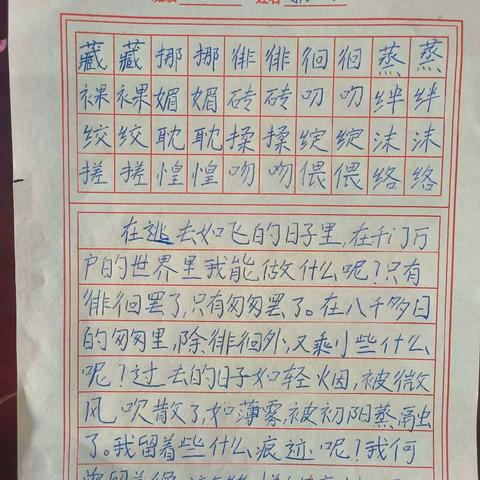 藏藏挪挪徘徘徊徊蒸蒸
裸裸媚媚砖砖叨叨绊绊
绞绞耽耽揉揉绽绽沫沫
搓搓惶惶吻吻偎偎络络
在逃去如飞的日子里,在千门万
户的世界里我能做什么呢?只有
徘徊罢了,只有匆匆罢了。在八千多日
的匆匆里,除徘徊外,又剩些什么
呢?过去的日子如轻烟,被微
风,吹散了,如薄雾,被初阳蒸融
了。我留着些什么痕迹呢?我何